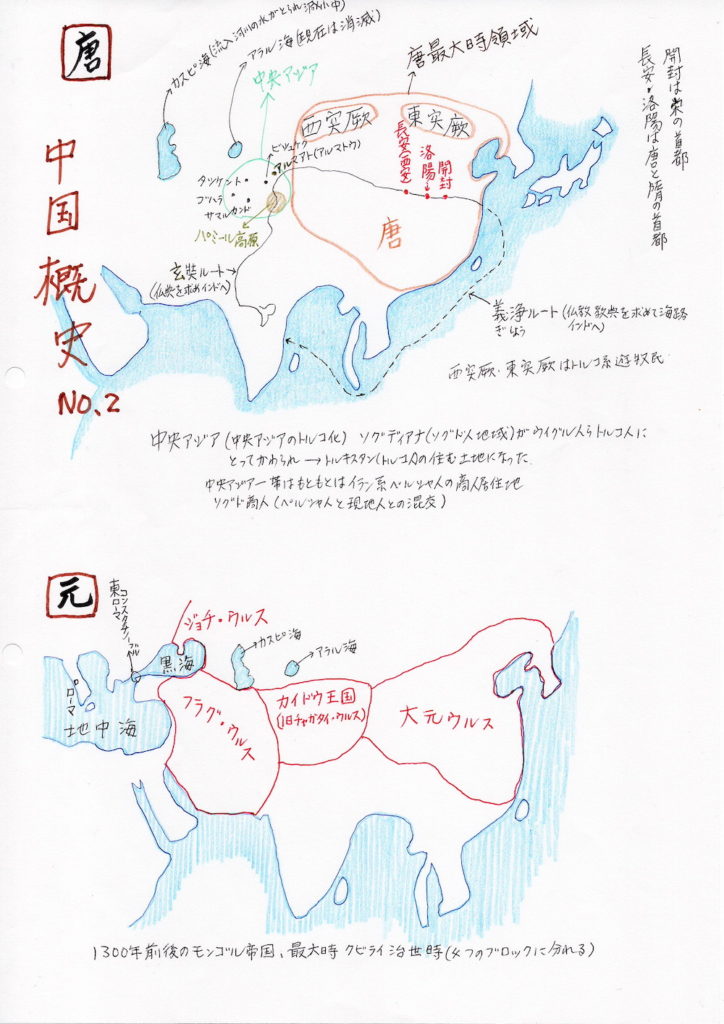 唐
中国概史
NO.2
カスピ海(流入河川の水がとられ減少中)
アラル海(現在は消滅)
中央アジア
唐最大時領域
開封は宋の首都
長安・洛陽は唐と隋の首都
西突厥
東突厥
ビシュケク
アルマアト(アルマトウ)
タシケント
ブハラ
サマルカンド
パミール高原
長安(西安)
洛陽
開封
唐
玄奘ルート
(仏典を求めインドへ)
義浄ルート(仏教教典を求めて海路
ぎじょう
インドへ)
西突厥・東突厥はトルコ系遊牧民
中央アジア(中央アジアのトルコ化) ソグディアナ(ソグド人地域)がウイグル人らトルコ人に
とってかわられ→トルキスタン(トルコ人の住む土地になった
中央アジア一帯はもともとはイラン系ペルシャ人の商人居住地
ソグド商人(ペルシャ人と現地人との混交)
元
コンスタンチノープル
東ローマ
ジョチ・ウルス
カスピ海
アラル海
黒海
ローマ
地中海
フラグ・ウルス
カイドゥ王国
(旧チャガタイ・ウルス)
大元ウルス
1300年前後のモンゴル帝国、最大時 クビライ治世時(4つのブロックに分れる)